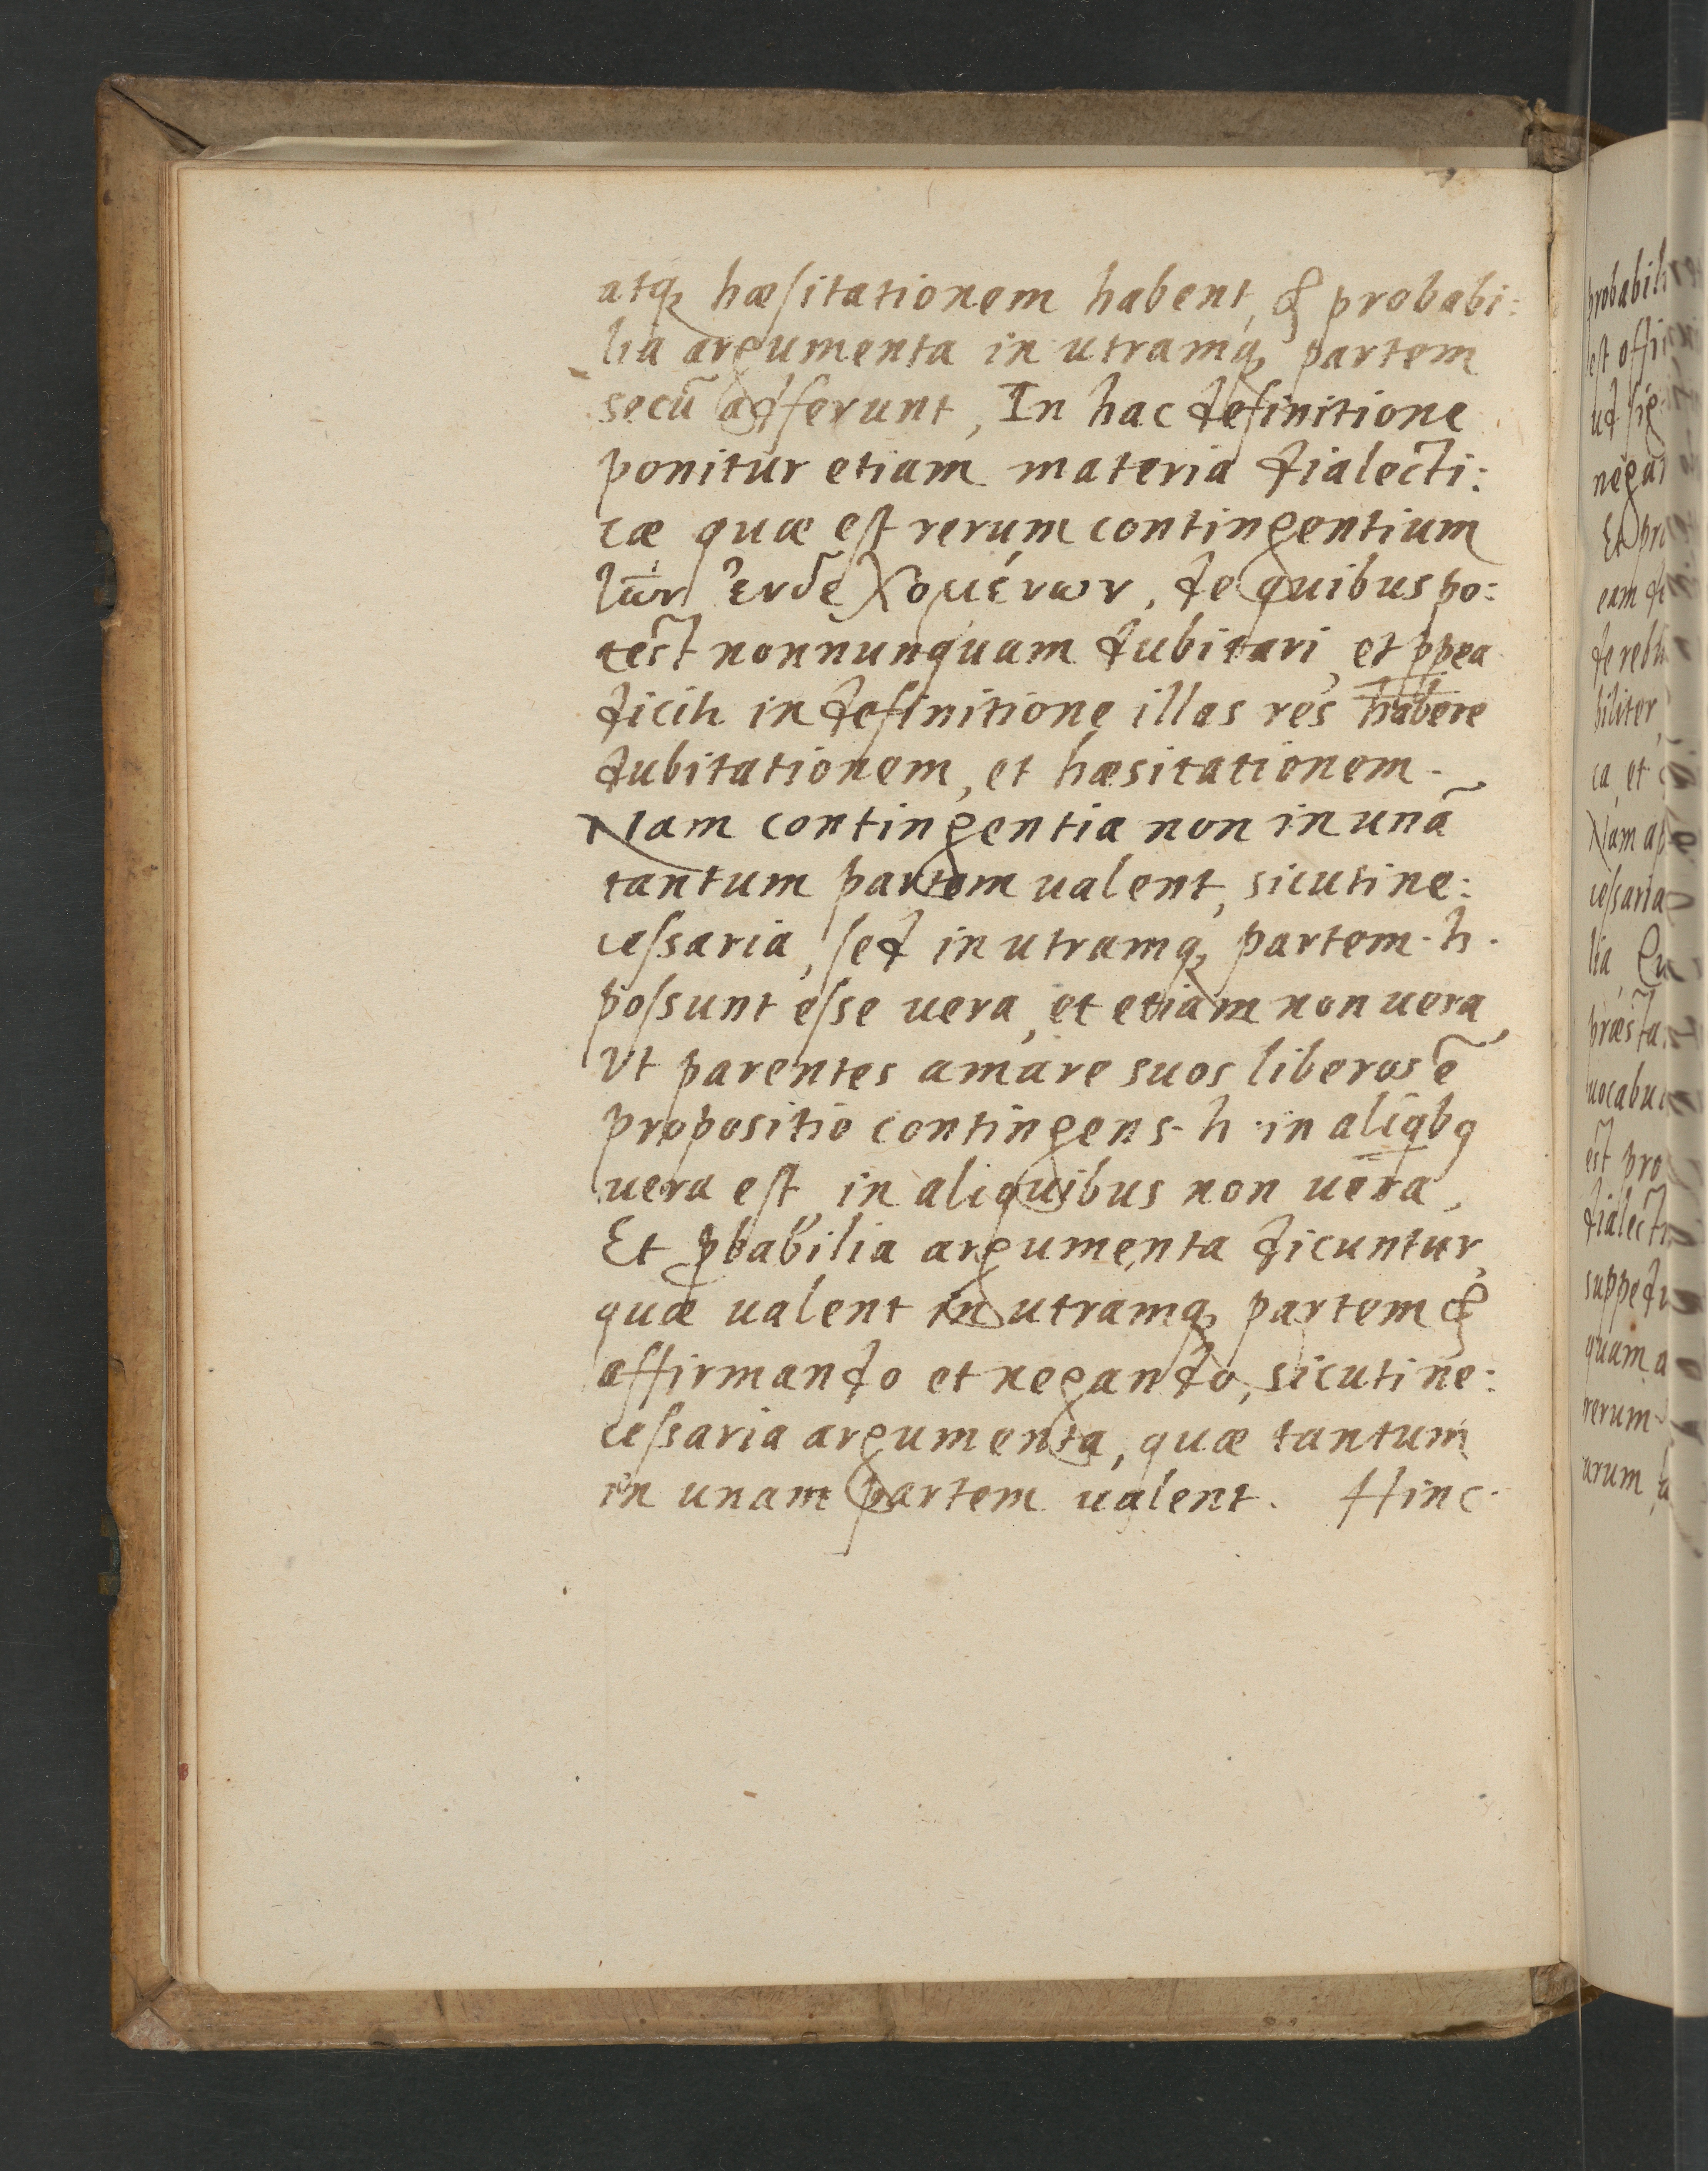 atq, hæſitationem habent, & probabi:
lia argumenta in utramq, partem
secū adferunt, In hac definitione
ponitur etiam materia dialecti:
cæ quæ eſt rerum contingentium
τῶν ἐνδεχομένων, de quibus po:
test nonnunquam dubitari, et ppea
dicit in definitione illas res habere
dubitationem, et hæsitationem.
Nam contingentia non in unā
tantum partem ualent, sicuti ne:
ceſsaria, ſed in utramq, partem. h.
poſsunt eſse uera, et etiam non uera,
Vt parentes amare suos liberos ē
propositio contingens. h. in aliqbq
uera eſt, in aliquibus non uera,
Et pbabilia argumenta dicuntur,
quæ ualent in utramq, partem &
affirmando et negando, sicuti ne:
ceſsaria argumenta, quæ tantum
in unam partem ualent. Hinc
probabili
eſt offi
ud ſig
negar
Et pro
eam de
de rebu
biliter,
ca, et
Nam ap
ceſsaria
lia, Qu
præsta
uocabu
est pro
dialecti
suppedi
quam a
rerum
arum